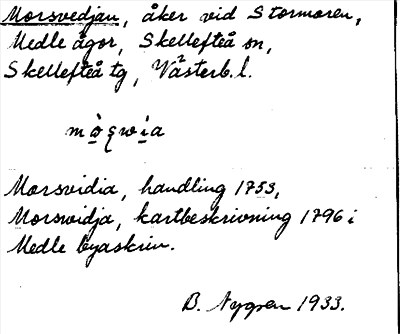 Morsvedjan, åker vid Stormoren,
Medle ägor, Skellefteå sn,
Skellefteå tg, Västerb. l.
Morsvidia, handling 1753,
Morswidja, kartbeskrivning 1796 i
Medle byaskrin.
B. Nygren 1933.